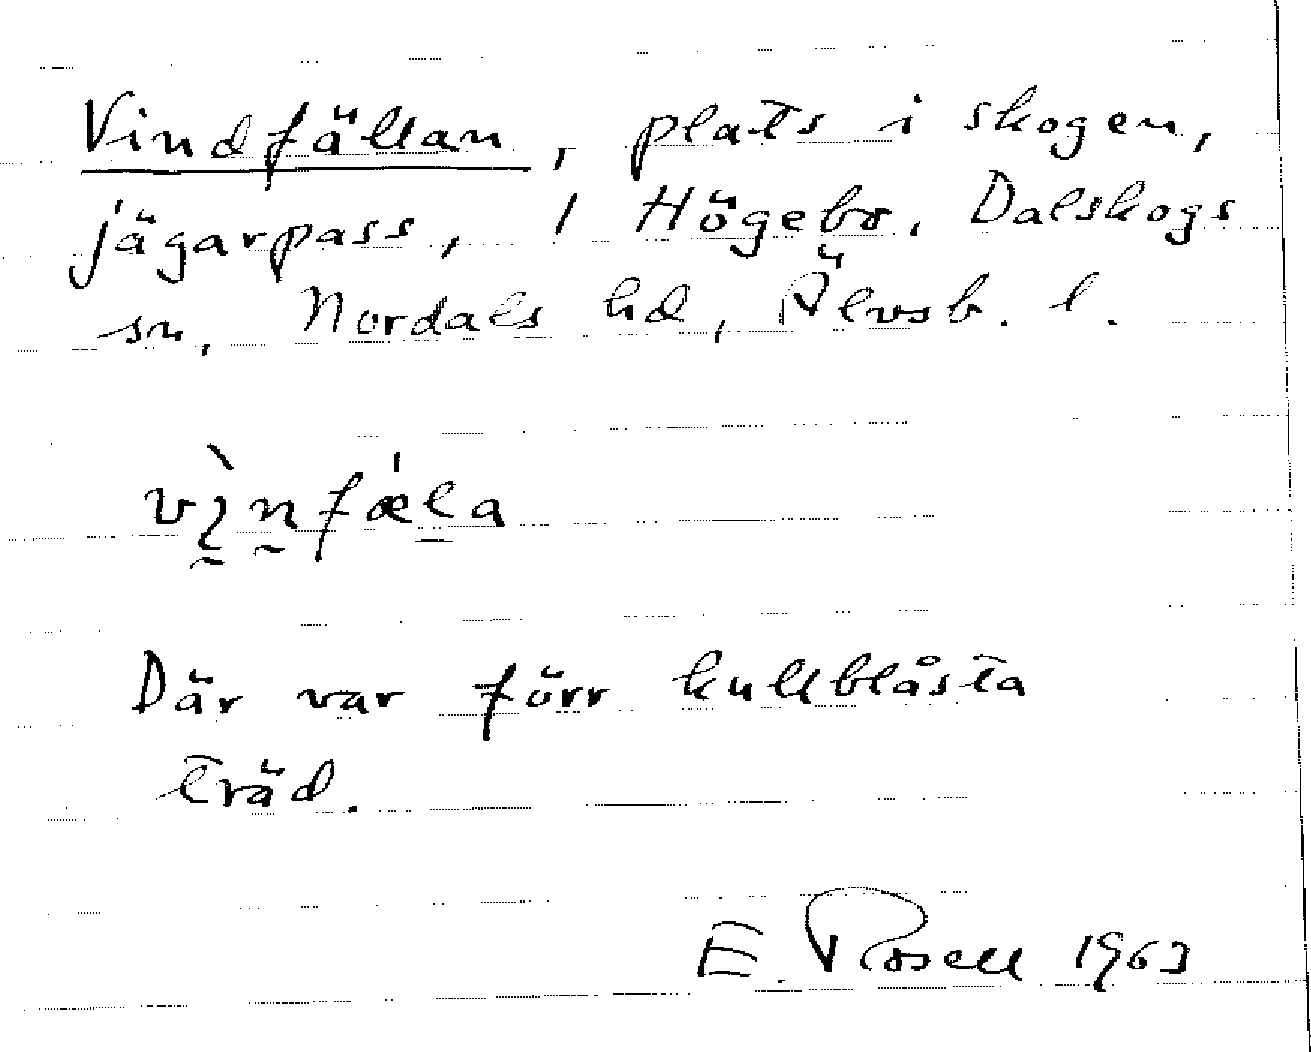 Vindfällan, plats i skogen,
jägarpass, / Högebo, Dalskogs
sn, Nordals hd, Älvsb. l.
vìnfæ̍la
Där var förr kullblåsta
träd.
E. Rosell 1963